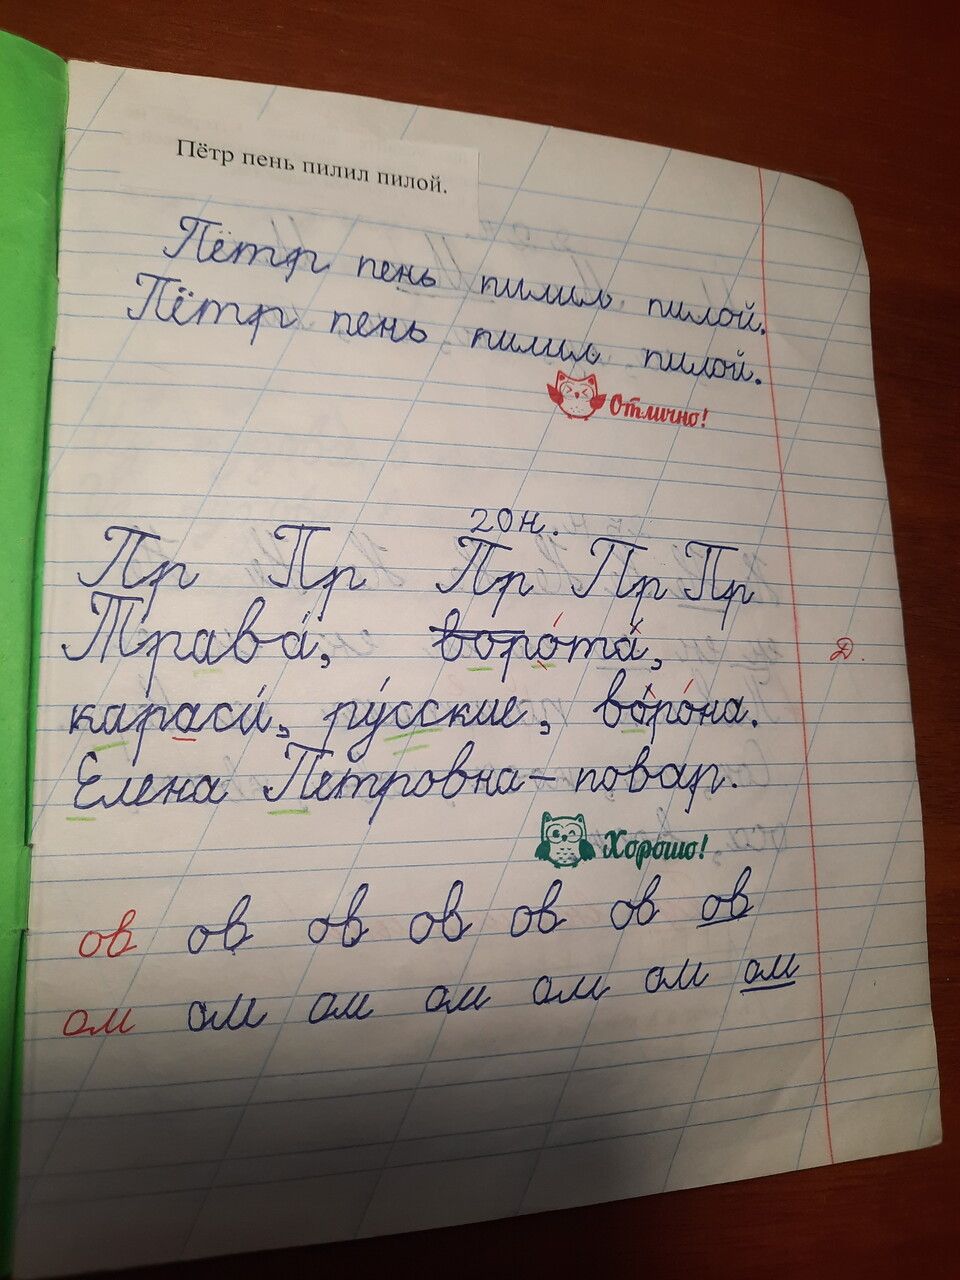 Пётр пень пилил пилой.
Пётр пень пилил пилой.
Пётр пень пилил пилой.
Отлично!
20 н.
Пр Пр Пр Пр Пр
Трава́, воро́та́,
Д.
караси́, ру́сские, во́ро́на.
Елена Петровна – повар.
Хорошо!
ов ов ов ов ов ов ов
ом ом ом ом ом ом ом